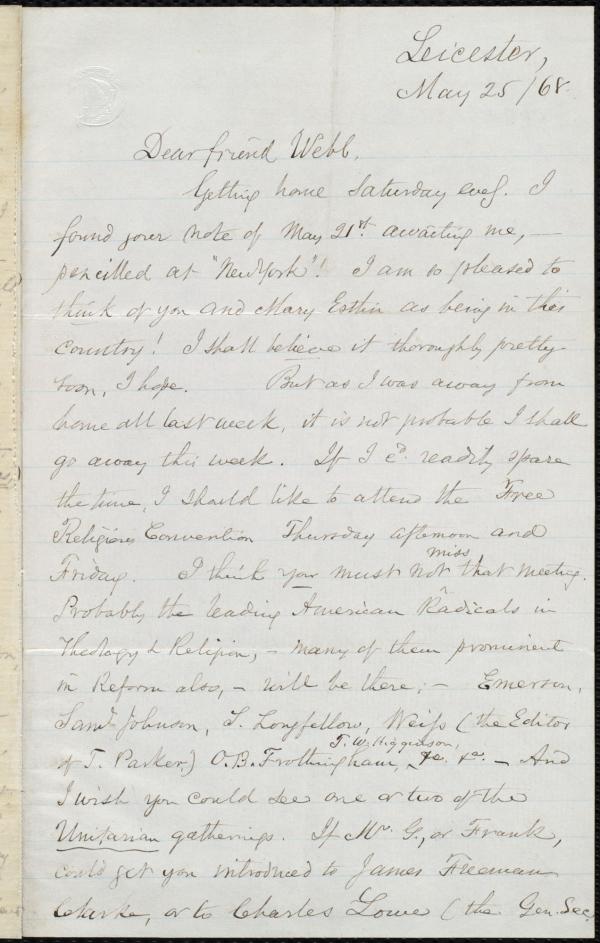 Leicester,
May 25/68.
Dear friend Webb.
Getting home Saturday eveg. I
found your note of May 21st. awaiting me, —
pencilled at "New York"! I am so pleased to
think of you and Mary Esther as being in this
country! I shall believe it thoroughly pretty
soon, I hope. But as I was away from
home all last week, it is not probable I shall
go away this week. If I cd. readily spare
the time, I should like to attend the Free
Religious Convention Thursday afternoon and
Friday. I think you must not miss that meeting.
Probably the leading American Radicals in
Theology & Religion, – many of them prominent
in Reform also, – will be there; – Emerson,
Saml. Johnson, S. Longfellow, Weiss (the Editor
of T. Parker) O.B. Frothingham, T. W. Higginson, &c. &c. – And
I wish you could see one or two of the
Unitarian gatherings. If Mr. G., or Frank,
could get you introduced to James Freeman
Clarke, or to Charles Lowe (the Gen. Sec.